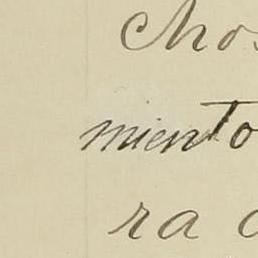 chos
miento
ra